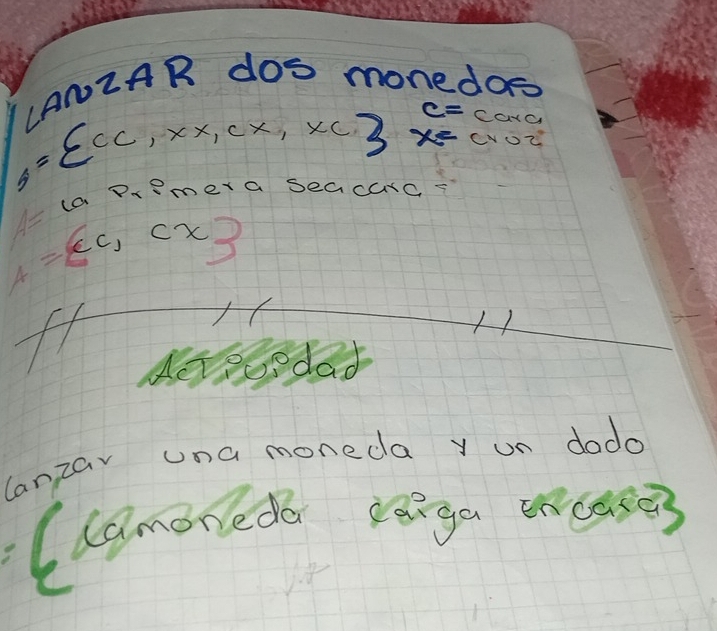 LANZAR dos monedas
S = {cc, xx, cx, xc} c = cara
x = cruz
A = la primera sea cara =
A = {cc, cx}
Actividad
lanzar una moneda y un dado
= {la moneda caiga en cara}